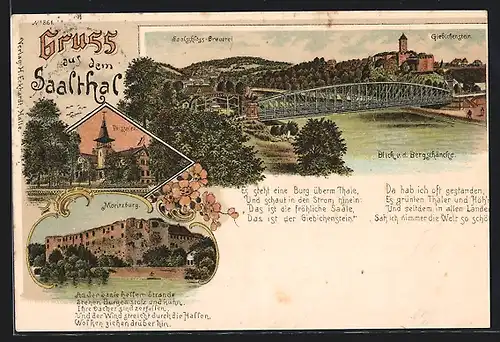 No 861.
Gruss
aus dem
Saalthal
Saalschloss-Brauerei
Giebichenstein.
Blick v. d. Bergschänke.
Moritzburg.
Es steht eine Burg überm Thale,
Und schaut in den Strom hinein:
Das ist die fröhliche Saale,
Das ist der Giebichenstein.
Da hab ich oft gestanden,
Es grünten Thäler und Höh'n
Und seitdem in allen Landen
Sah ich nimmer die Welt so schö
An der Saale hellem Strande
Stehen Burgen stolz und kühn,
Ihre Dächer sind zerfallen,
Und der Wind streicht durch die Hallen,
Wolken ziehen drüber hin.